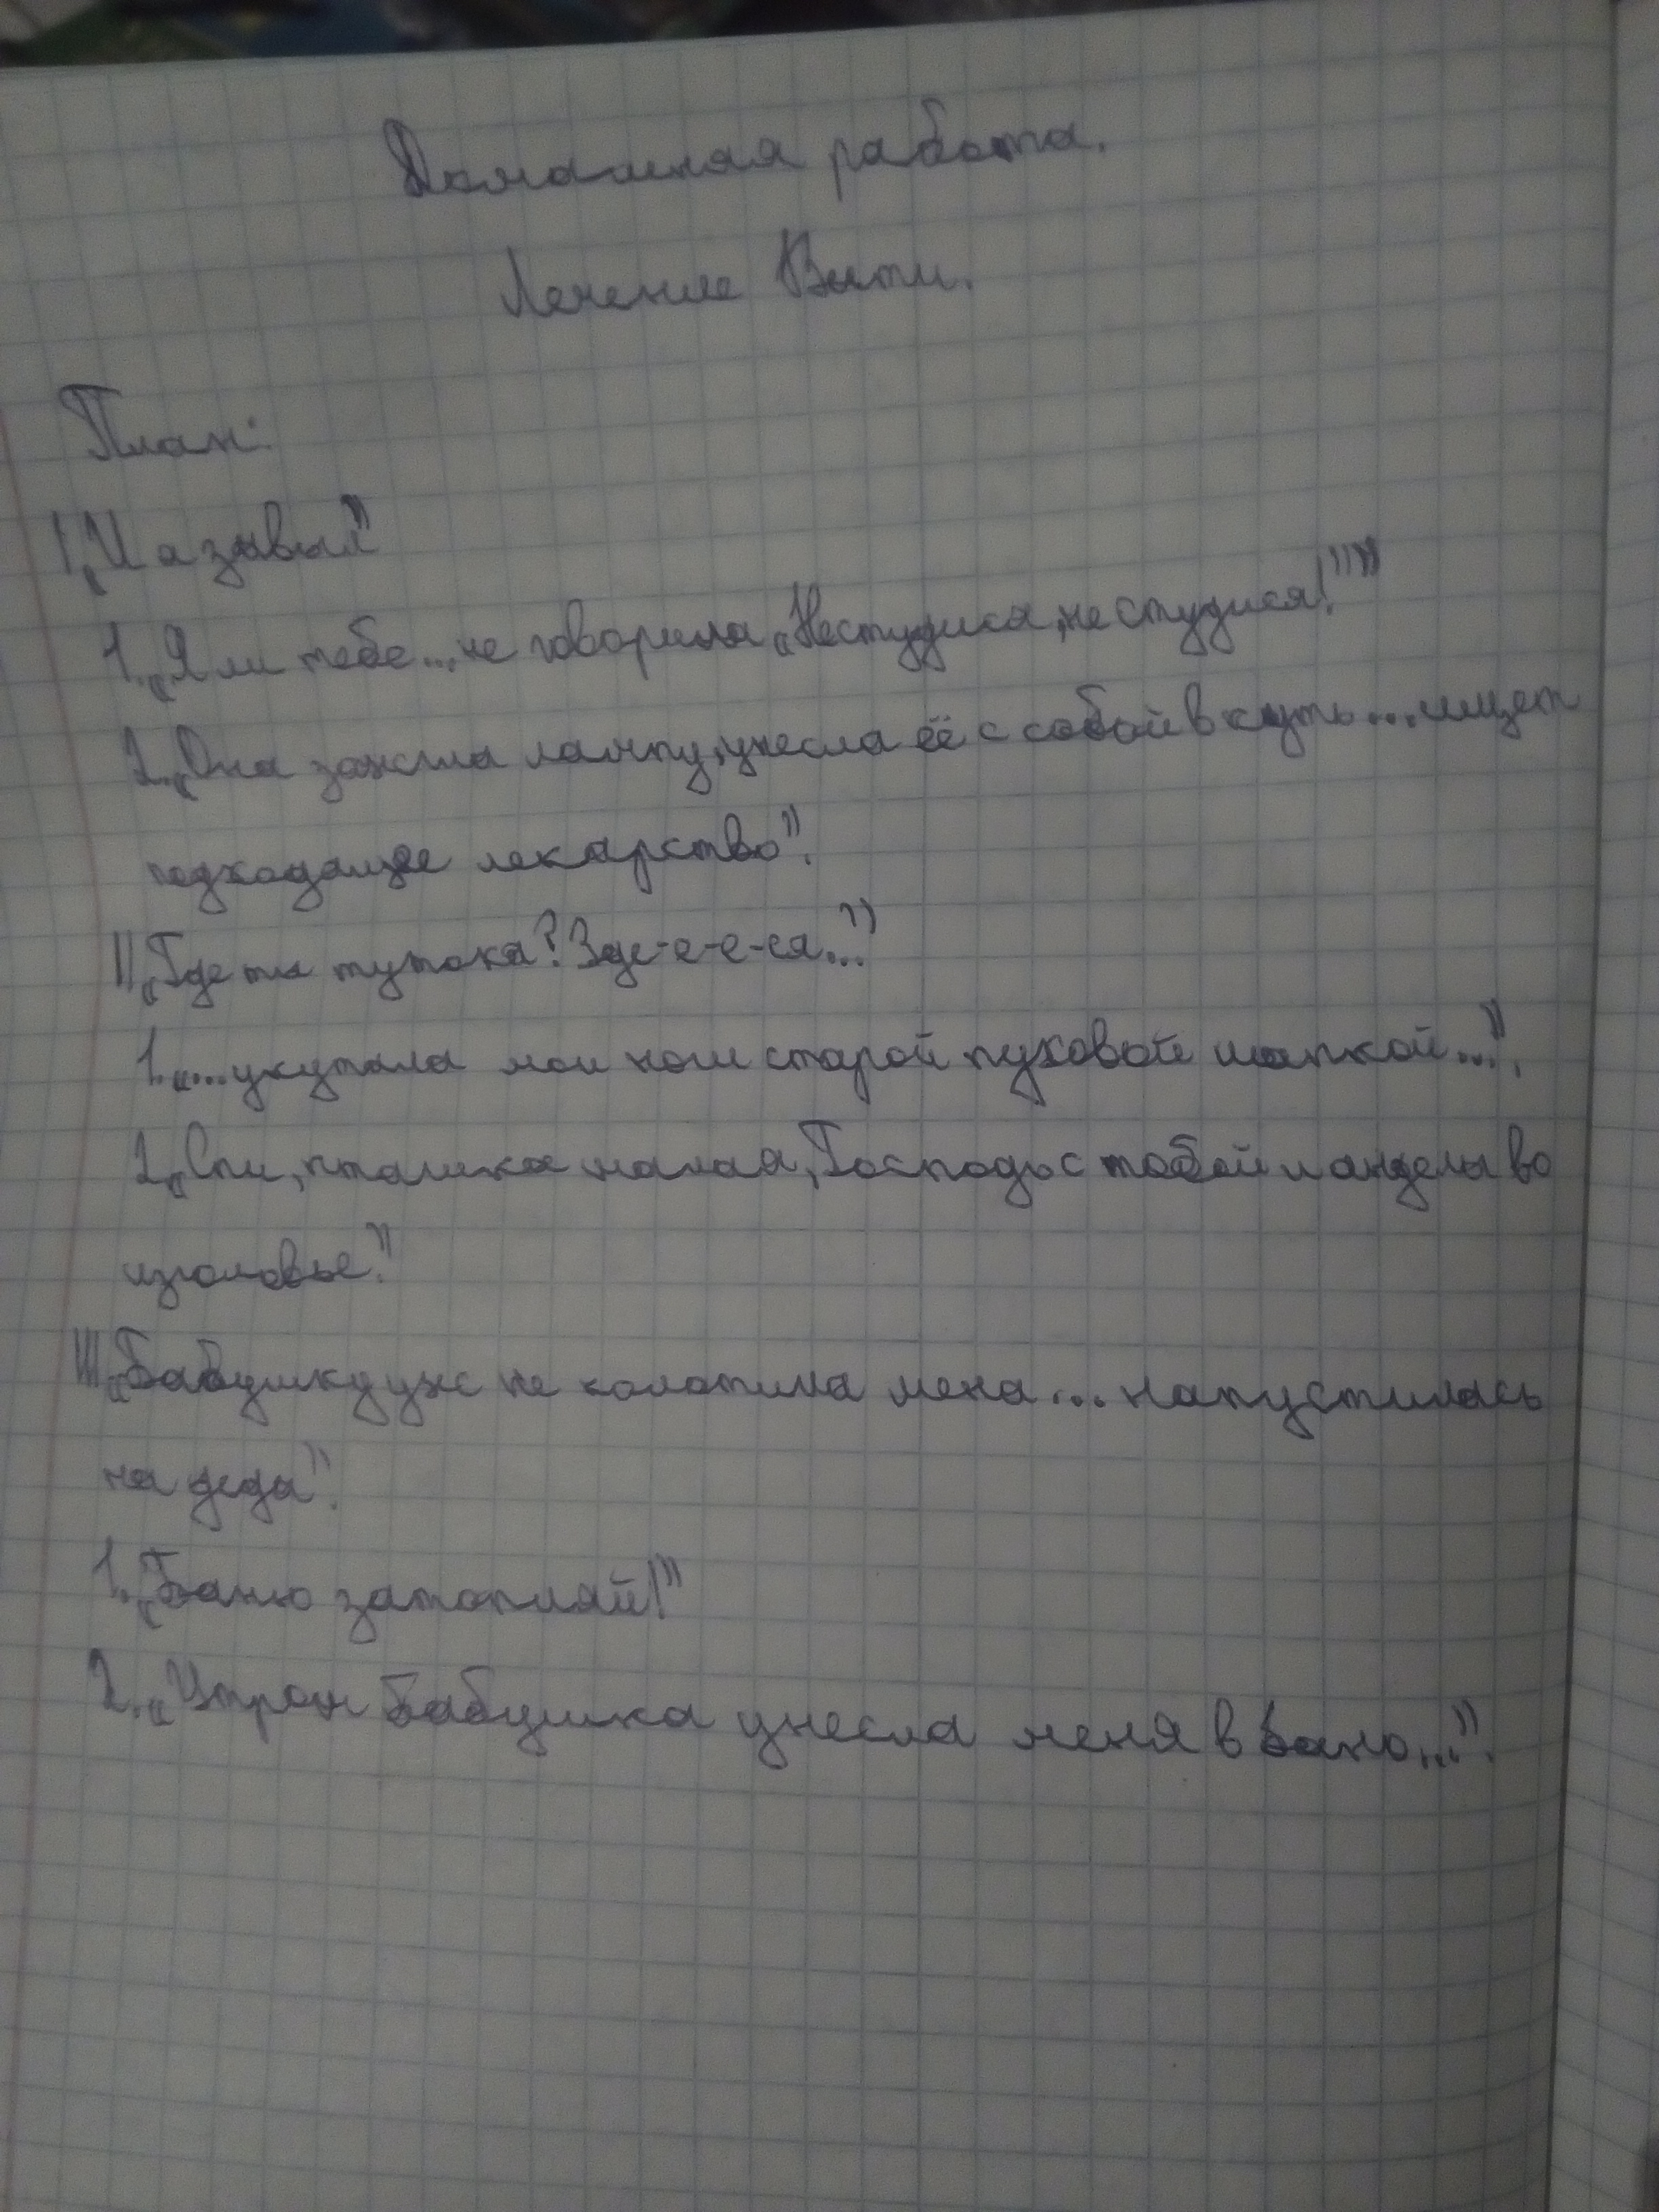 Домашняя работа.
Лечение Вити.
План:
I „И я взвыл”
1. „Я ли тебе... не говорила „Не студися, не студися!””
2. „Она зажгла лампу, унесла её с собой в куть... ищет
подходящее лекарство”.
II „Где та тутока? Зде-е-е-ся...”
1. „...укутала мои ноги старой пуховой шапкой...”.
2. „Спи, пташка малая, Господь с тобой и анделы во
изголовье.”
III „Бабушку уже не колотила меня... напустилась
на деда”.
1. „Баню затопляй!”
2. „Утром бабушка унесла меня в баню...”.